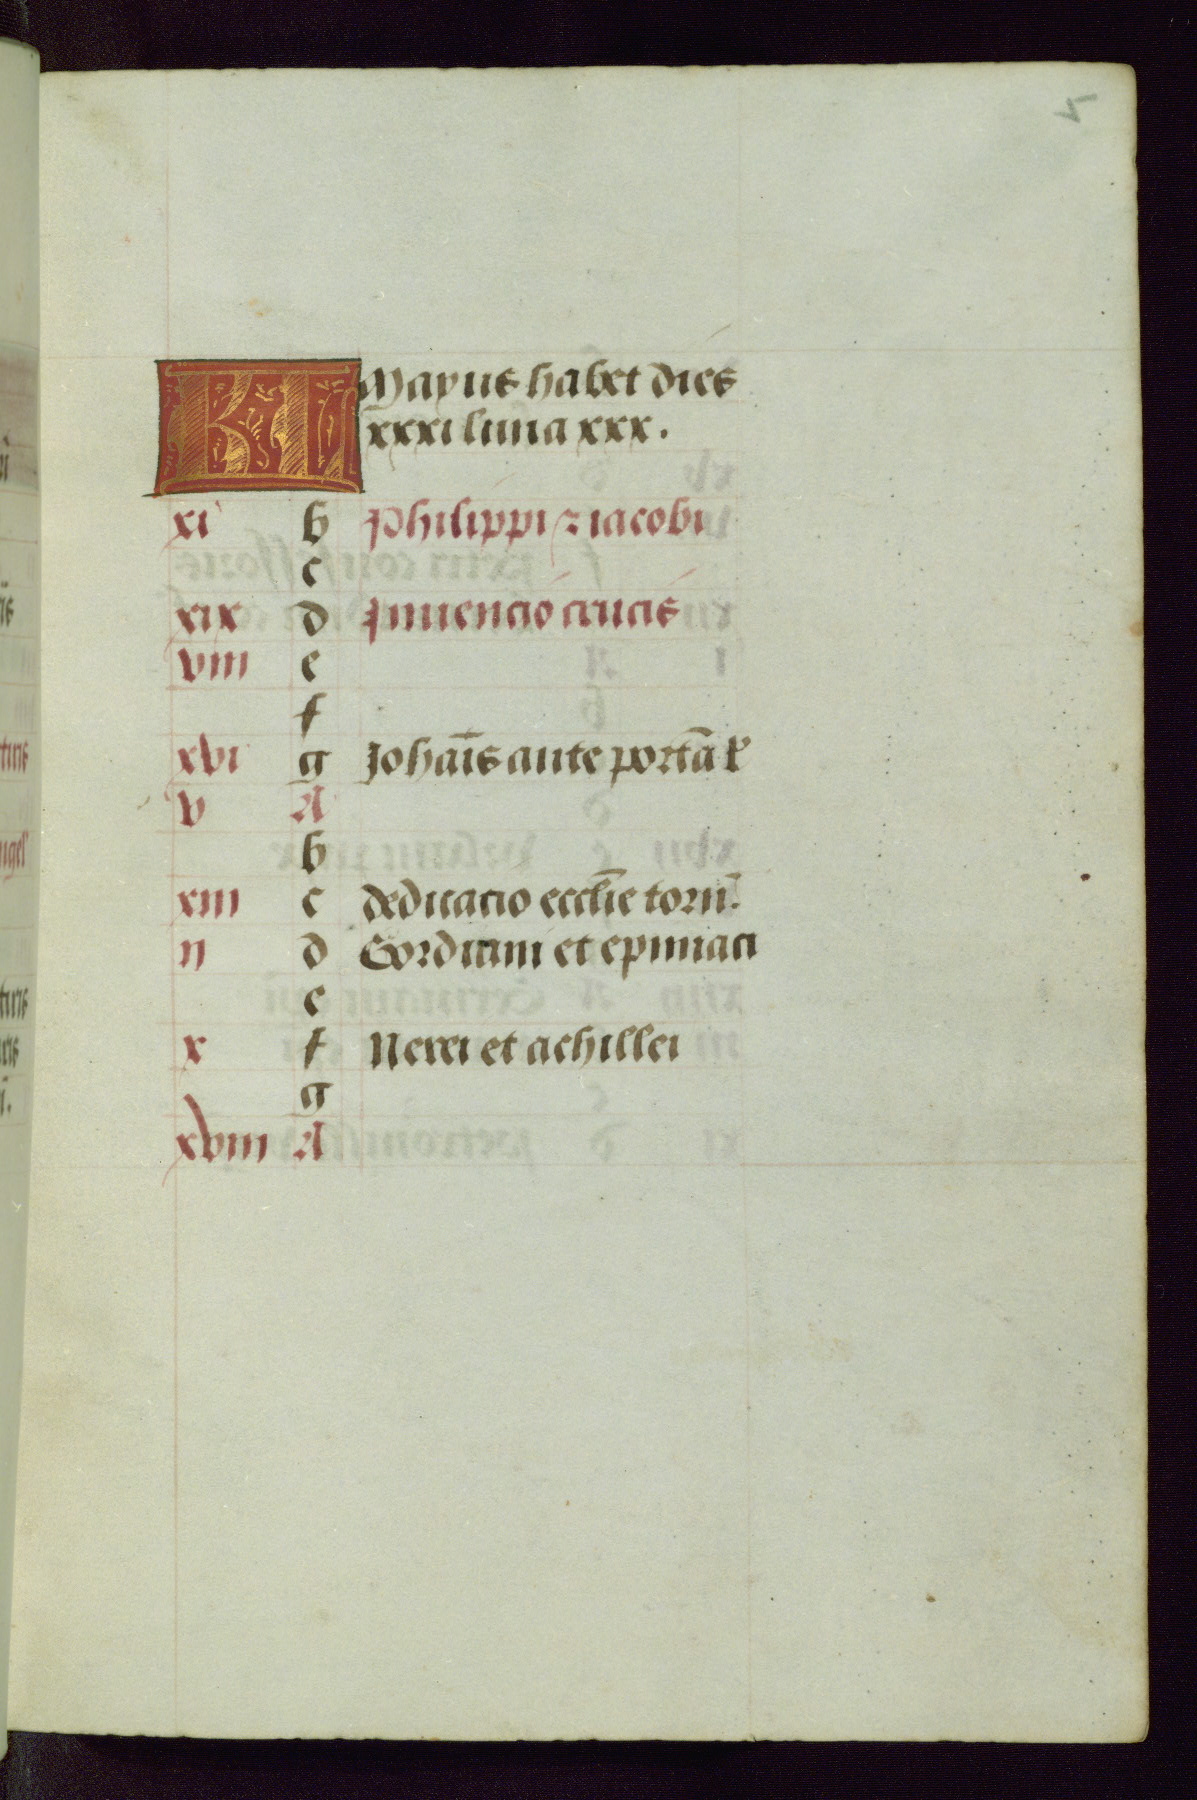 KL Mayus habet dies
xxxi luna xxx.
xi b Philippi ⁊ iacobi
c
xix d Jnuencio crucis
viii e
f
xvi g Johãis ante portã
v A
b
xiii c dedicacio ecclie torñ.
ii d Gordiani et epimaci
e
x f Nerei et achillei
g
xviii A